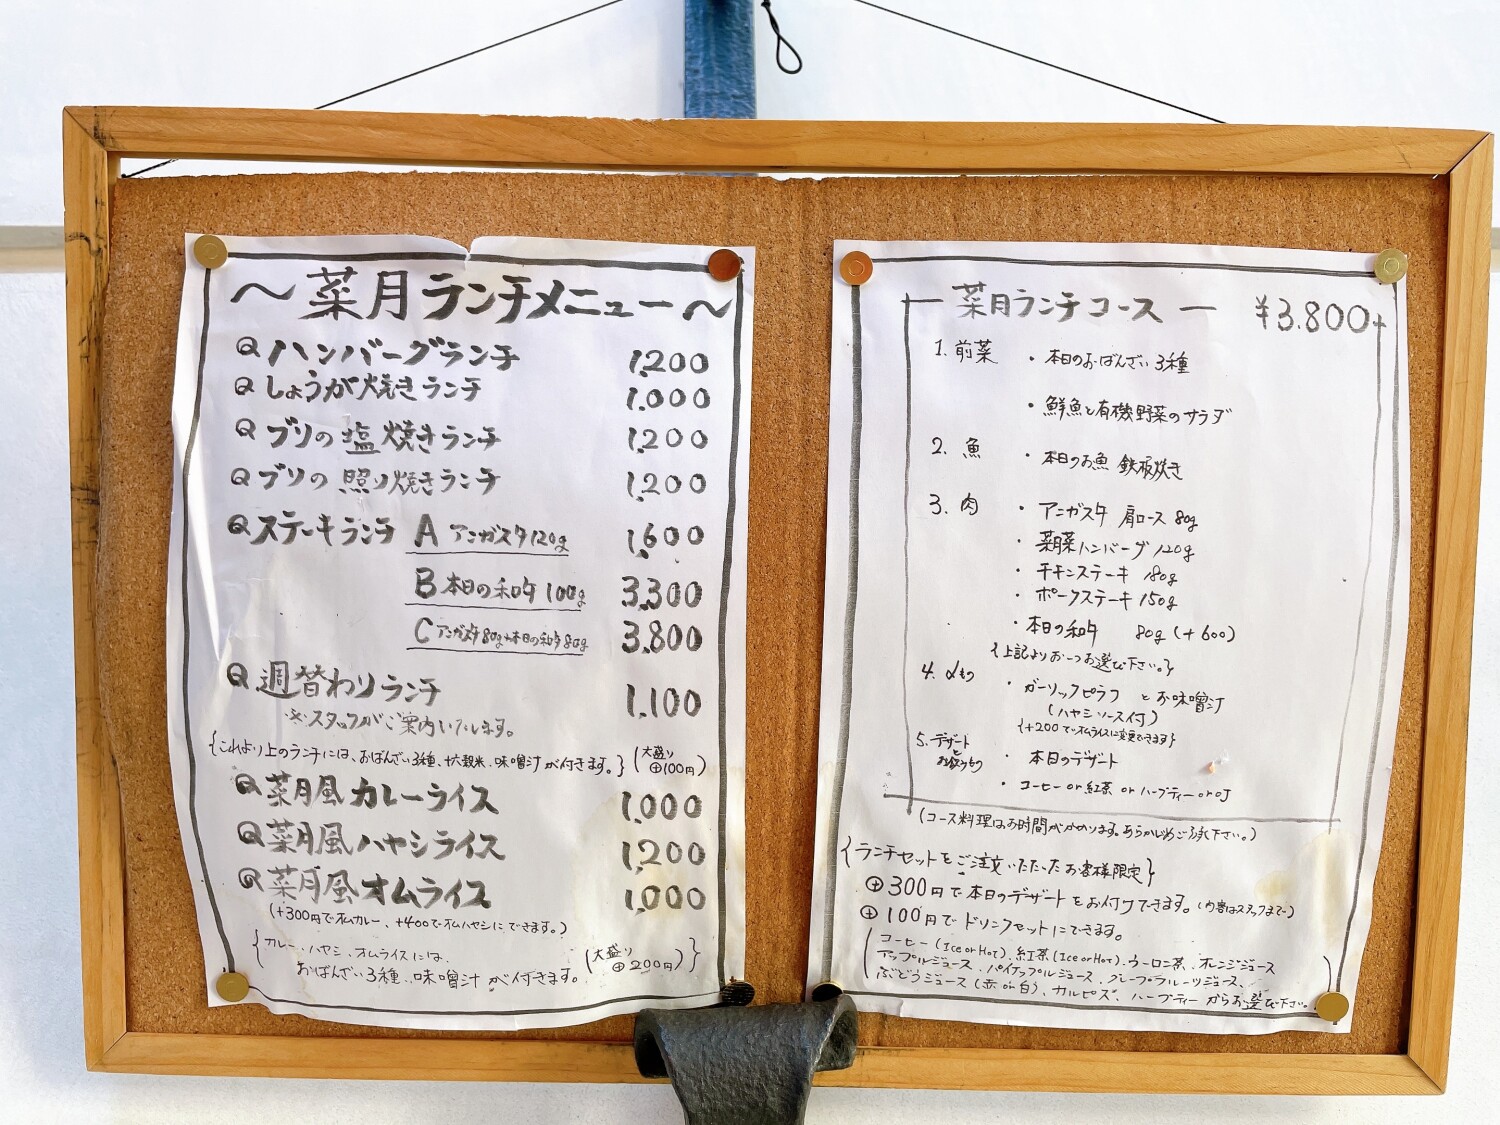 〜菜月ランチメニュー〜
ハンバーグランチ 1,200
しょうが焼きランチ 1,000
ブリの塩焼きランチ 1,200
ブリの照り焼きランチ 1,200
ステーキランチ A アンガス牛120g 1,600
B 本日の和牛 100g 3,300
C アンガス牛80g+本日の和牛80g 3,800
週替わりランチ 1,100
※スタッフがご案内いたします。
{これより上のランチには、おばんざい3種、十六穀米、味噌汁が付きます。} (大盛り⊕100円)
菜月風カレーライス 1,000
菜月風ハヤシライス 1,200
菜月風オムライス 1,000
(+300円でオムカレー、+400でオムハヤシにできます。)
{カレー、ハヤシ、オムライスには、
おばんざい3種、味噌汁が付きます。(大盛り⊕200円)}
― 菜月ランチコース ― ¥3.800+
1. 前菜 ・本日のおばんざい3種
・鮮魚と有機野菜のサラダ
2. 魚 ・本日のお魚 鉄板焼き
3. 肉 ・アンガス牛 肩ロース 80g
・菜月ハンバーグ 120g
・チキンステーキ 180g
・ポークステーキ 150g
・本日の和牛 80g (+600)
{上記よりお一つお選び下さい。}
4. 〆もの ・ガーリックピラフ とお味噌汁
(ハヤシソース付)
{+200でオムライスに変更できます}
5. デザートとお飲みもの ・本日のデザート
・コーヒー or 紅茶 or ハーブティー or OJ
(コース料理はお時間がかかります。あらかじめご了承下さい。)
{ランチセットをご注文いただいたお客様限定}
⊕300円で本日のデザートをお付けできます。(内容はスタッフまで)
⊕100円でドリンクセットにできます。
(コーヒー(Ice or Hot)、紅茶(Ice or Hot)、ウーロン茶、オレンジジュース
アップルジュース、パイナップルジュース、グレープフルーツジュース、
ぶどうジュース(赤 or 白)、カルピス、ハーブティーからお選び下さい。)